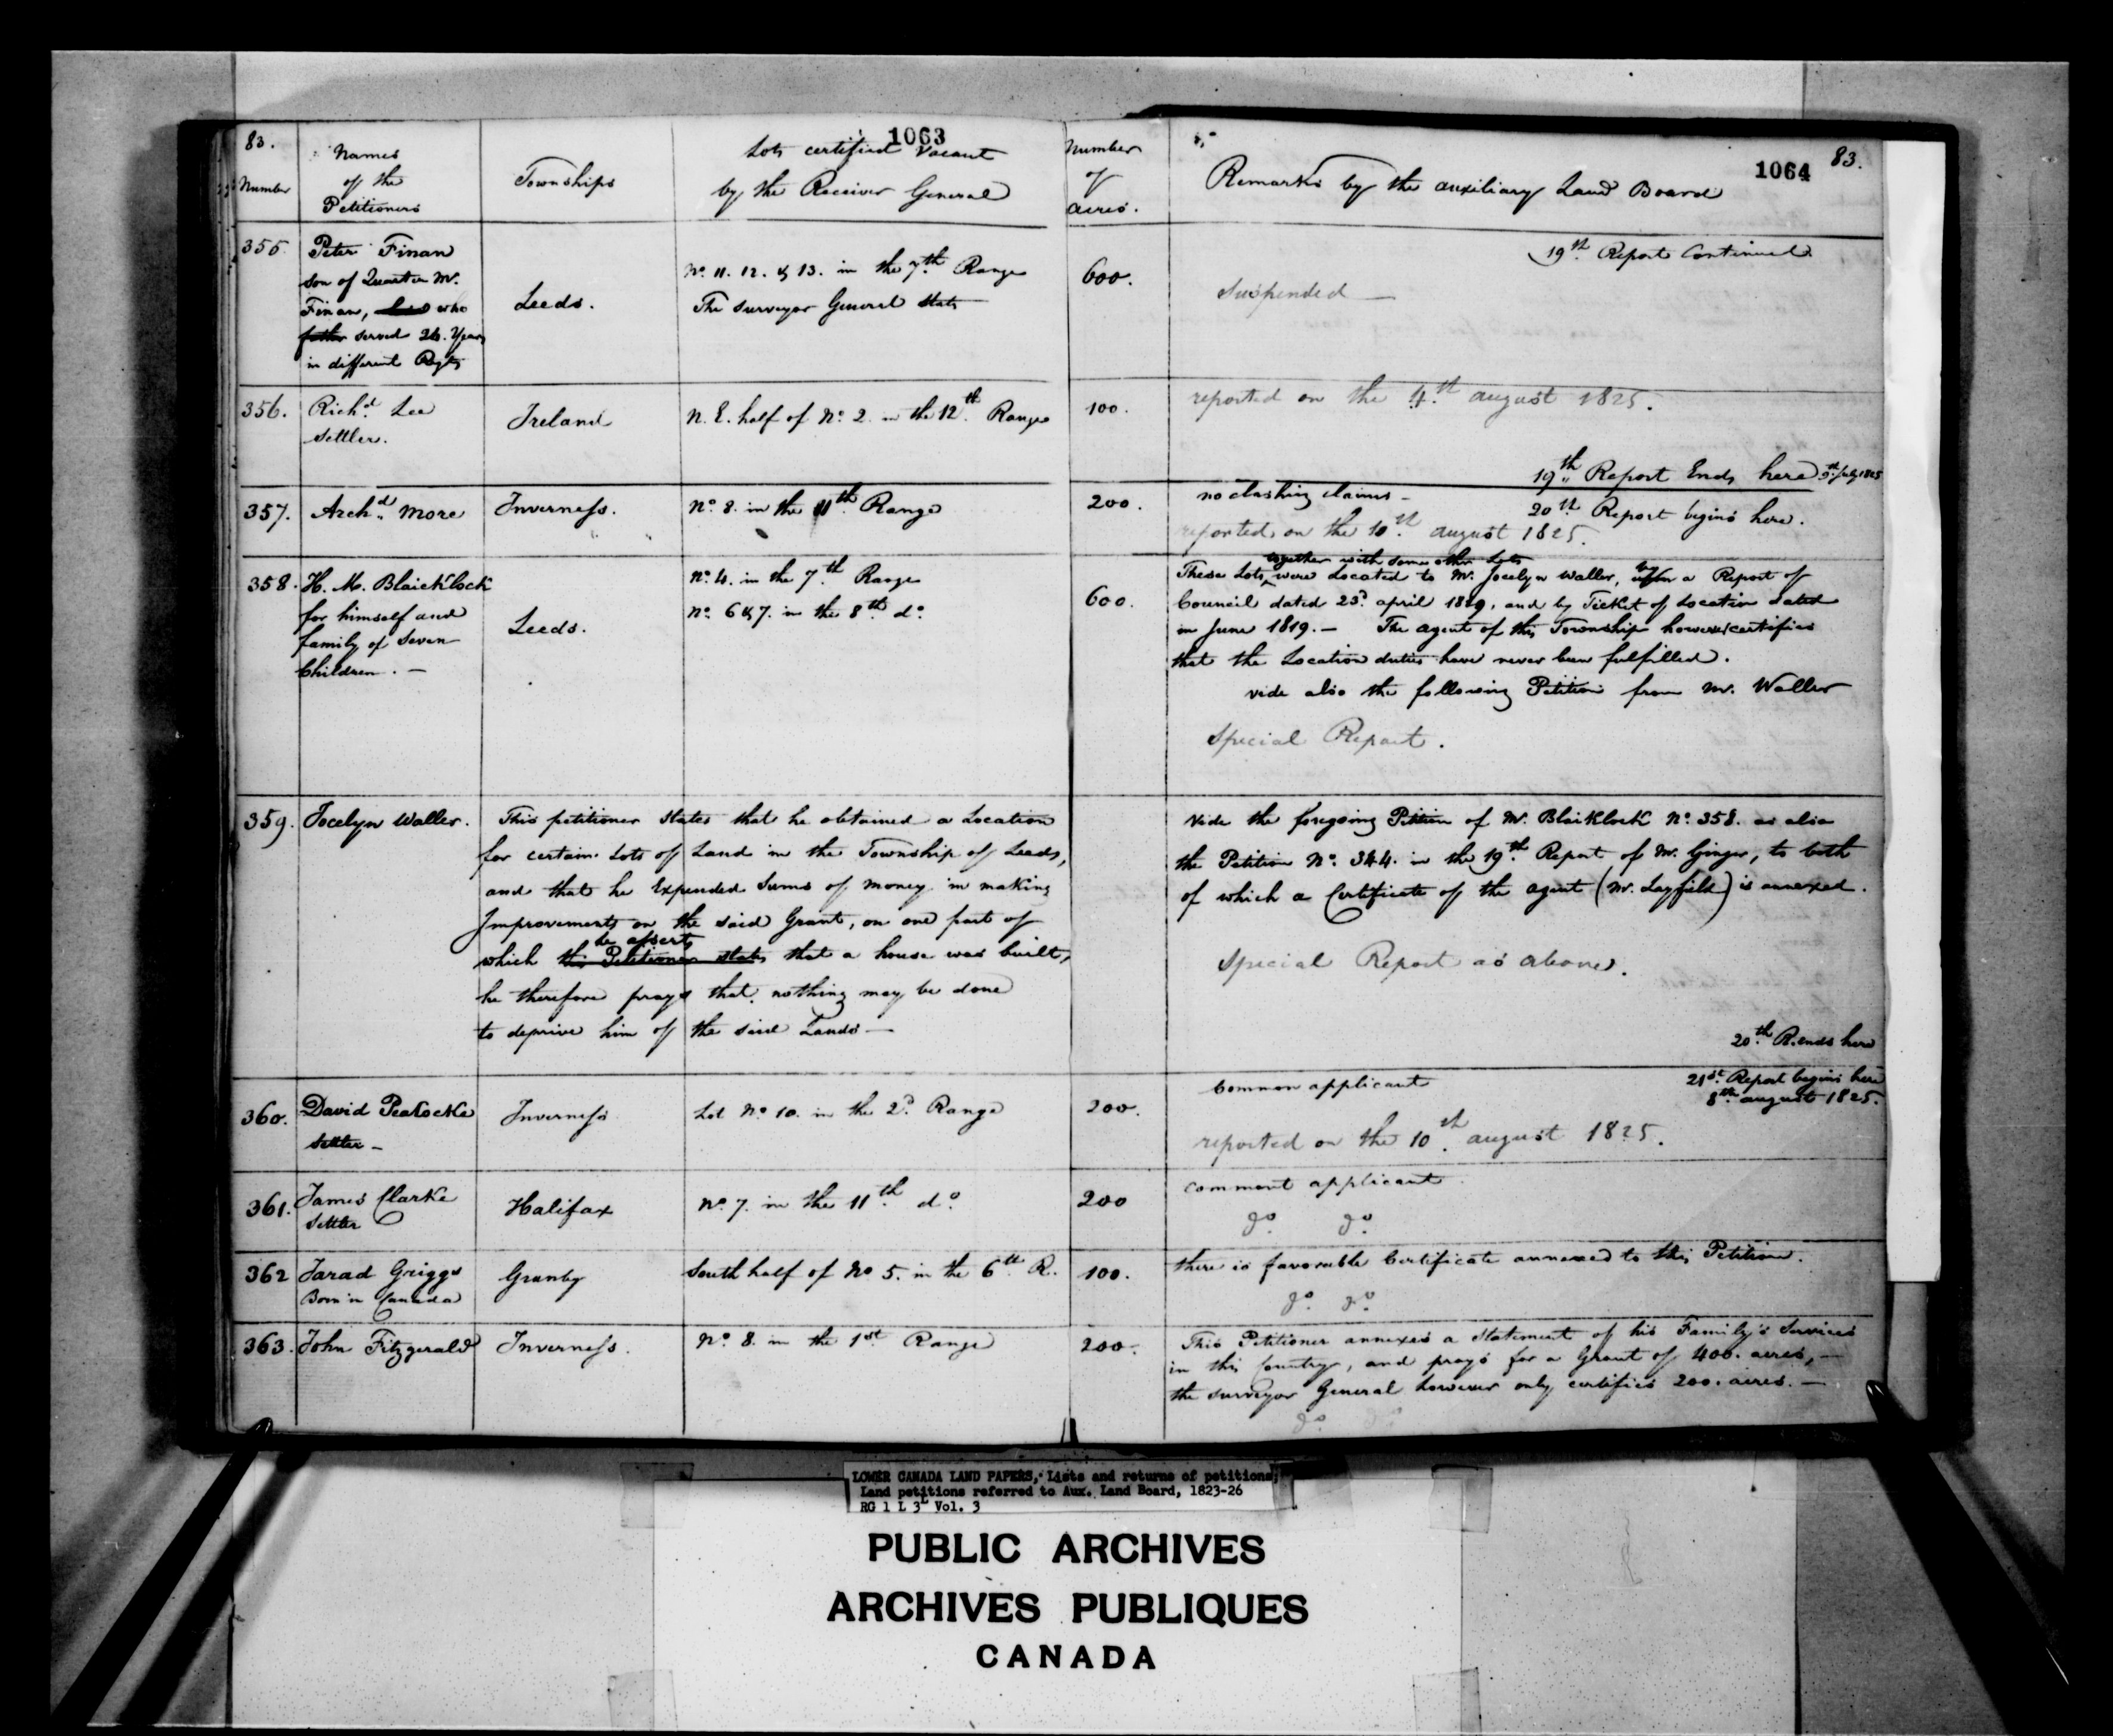 83.
1063
Number
Names
of the
Petitioners
Townships
Lots certified Vacant
by the Receiver General
Number
of
acres.
Remarks by the auxiliary Land Board
1064
83.
355.
Peter Finan
son of Quarter Mr.
Finan, who
father served 26. Years
in different Regts
Leeds.
No. 11. 12. & 13. in the 7.th Range
The surveyor General states
600.
19.th Report Continued.
Suspended —
356.
Richd. Lee
Settler.
Ireland
N. E. half of No. 2. in the 12.th Range
100.
reported on the 4.th august 1825.
19.th Report Ends here 5th July 1825
357.
Archd. More
Inverness.
No. 8. in the 11th Range
200.
no clashing claims -
20th Report begins here.
reported on the 10.th august 1825.
358.
H. M. Blaicklock
for himself and
family of Seven
Children. —
Leeds.
No. 4. in the 7.th Range
No. 6 & 7. in the 8th do.
600.
together with some other Lots
These Lots, were Located to Mr. Jocelyn Waller, by a Report of
Council dated 23d. april 1819, and by Ticket of Location dated
in June 1819. — The agent of this Township however certifies
that the Location duties have never been fulfilled.
vide also the following Petition from Mr. Waller
Special Report.
359.
Jocelyn Waller.
This petitioner States that he obtained a Location
for certain Lots of Land in the Township of Leeds,
and that he Expended Sums of money in making
Improvements on the said Grant, on one part of
he asserts
which this Petitioner states that a house was built,
he therefore prays that nothing may be done
to deprive him of the said Lands —
Vide the foregoing Petition of Mr. Blaiklock No. 358. as also
the Petition No. 344. in the 19.th Report of Mr. Ginger, to both
of which a Certificate of the agent (Mr. Layfield) is annexed.
Special Report as above.
20.th R. ends here
360.
David Peacocke
Settler —
Inverness
Lot No. 10. in the 2d. Range
200.
Common applicant
21st. Report begins here
8th august 1825.
reported on the 10.th august 1825.
361.
James Clarke
Settler
Halifax
No. 7. in the 11th. do.
200
comment applicant
do. do.
362
Jarad Griggs
Born in Canada
Granby
South half of No 5. in the 6th. R.
100.
there is favorable Certificate annexed to this Petition.
do. do.
363.
John Fitzgerald
Inverness.
No. 8. in the 1st. Range
200.
This Petitioner annexes a Statement of his Family's Services
in this Country, and prays for a Grant of 400. acres, —
the surveyor General however only certifies 200. acres. —
do. do.
LOWER CANADA LAND PAPERS, Lists and returns of petitions;
Land petitions referred to Aux. Land Board, 1823-26
RG 1 L 3L Vol. 3
PUBLIC ARCHIVES
ARCHIVES PUBLIQUES
CANADA